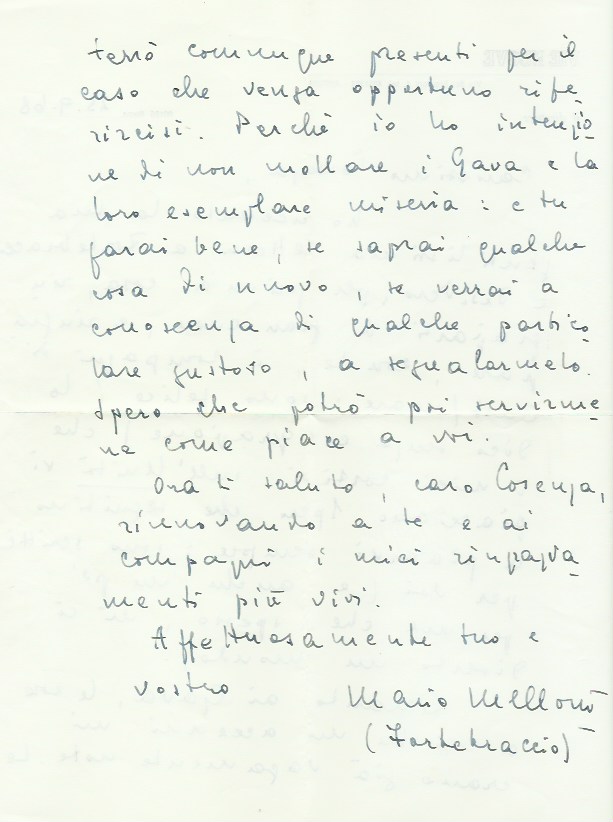 terrò comunque presenti per il
caso che venga opportuno rife-
rircisi. Perché io ho intenzio-
ne di non mollare i Gava e la
loro esemplare miseria: e tu
farai bene, se saprai qualche
cosa di nuovo, se verrai a
conoscenza di qualche partico-
lare gustoso, a segnalarmelo.
Spero che potrò poi servirme-
ne come piace a voi.
Ora ti saluto, caro Cosenza,
rinnovando a te e ai
compagni i miei ringrazia-
menti più vivi.
Affettuosamente tuo e
vostro Mario Melloni
(Fortebraccio)